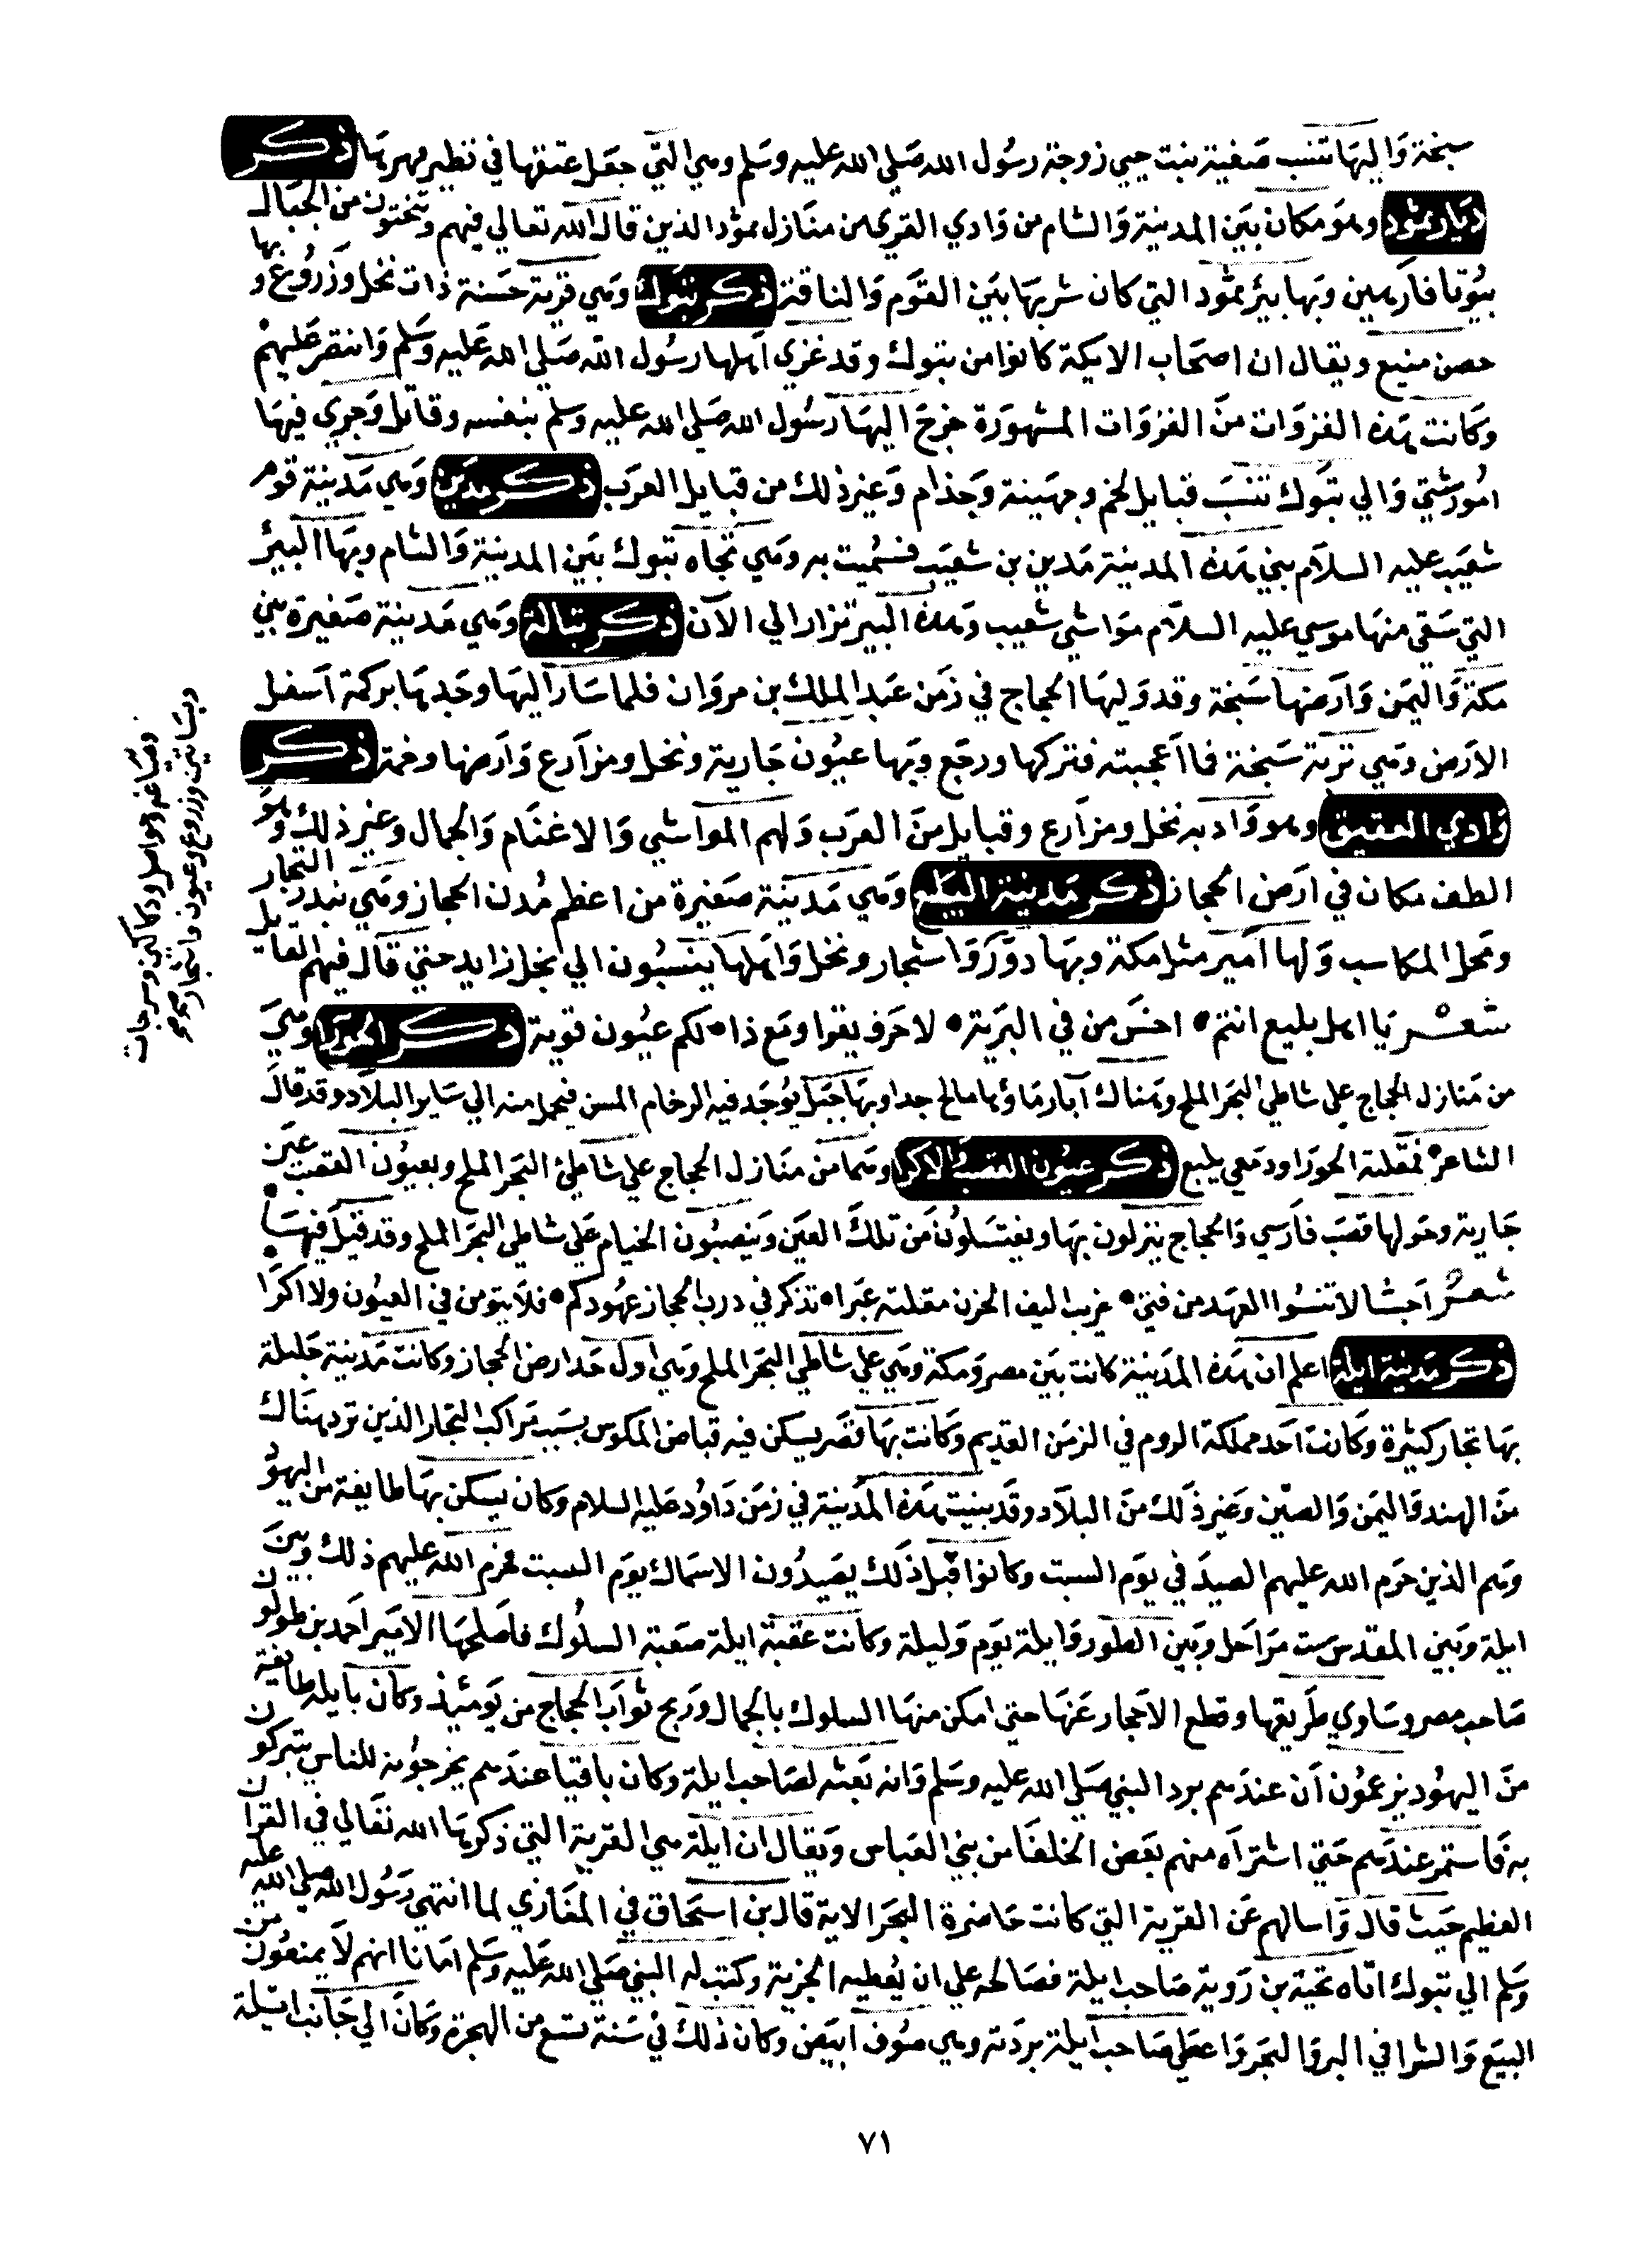 سبخة وَاليهَا تنسب صَفية بنت حيي زوجة رسُول الله صَلي الله عليه وسَلم وهي التي جعَل عتقها في نظير مهرهَا ذكر
ديار ثمود وهو مكان بَين المدينة وَالشام من وَادي القري من منَازل ثمود الذين قال الله تعالي فيهم وتنحتون من الجبَال
بيُوتا فارهين وبها بئر ثمُود التي كان شربهَا بَين القوَم وَالناقة ذكر تبوك وَهي قرية حسَنة ذات نخل وزرُوع و بها
حصن منيع ويقال ان اصحَاب الايكة كانوا من تبوك وقد غزي اهلها رسُول الله صَلي الله عَليه وسَلم وَانتصر عَليهمْ
وكَانت هَذه الغزوَات منَ الغزوَات المشهوَرة خرجَ اليهَا رسُول الله صَلي الله عليه وسلم بنفسه وقاتل وَجري فيهَا
امُور شتي وَالي تبوك تنسَب قبايل لخم وجهَينة وَجذام وَغير ذلك من قبايل العرَب ذكر مدين وَهي مَدينة قوم
شعيَب عليه السلاَم بني هَذه المدينة مَدين بن شعيَب فسُميت به وَهي تجاه تبوك بَين المدينة وَالشام وبهَا البئرُ
التي سَقي منهَا موسي عليه السلاَم موَاشي شعيب وَهذه البير تزار الي الآن ذكر تبالة وَهي مَدينة صَغيرة بين
مكة وَاليمَن وَارَضهَا سَبخة وقد وَليهَا الحجاج في زمَن عَبد الملك بن مروَان فلما سَار اليهَا وجَدهَا بركة اسفل
الارَض وَهي تربة سَبخة فما اعجبته فتركها ورجَع وبَها عيُون جَارية ونخل ومزارع وَارَضها وخمة ذكر
وَادي العقيق وهو وَاد به نخل ومزارع وقبايل منَ العرَب وَلهم الموَاشي وَالاغنَام وَالجمال وغير ذلك وهو
الطف مكان في ارَض الحجاز ذكر مَدينة الينبع وَهي مَدينة صَغيرة من اعظم مُدن الحجاز وهَي بندر التجار
ومَحل المكاسب وَلها امَير مثل مكة وبهَا دوَر وَاشجار ونخل وَاهلهَا ينسبُون الي بخل زايد حتي قَال فيهم القايل
شعر يَا اهل ينبع انتم احسَن من في البريَة لا حَرف يقوا ومَع ذا لكم عيُون قوية ذكر الحورا وهيَ
من مَنازل الحجاج علي شاطي البَحر الملح وهَناك آبار مَاؤها مالح جدا وبهَا جبَل يوُجَد فيه الرخام المسن فيحمل منه الي سَاير البلاَد وقد قالَ
الشاعر فمقلته الحوَرا ودمَعي ينبع ذكر عيون القصب الاكره وهَما من منَازل الحجاج علي شاطئ البَحر الملح وبعيوُن القصَب عيَن
جَارية وحَولها قصَب فاَرسي وَالحجاج ينزلون بهَا ويغتسَلوُن مَن تلكَ العيَن وَينصبُون الخيام عَلي شاطي البَحر الملح وقد قيَل فيهَا
شعر احبتنا لا تنسُوا العهَد من فتي غريب اليف الحزن مقلته عبَرا تذكر في درب الحجاز عهُودكم فلاَ يتوَمن في العيُون ولا اكرَا
ذكر مَدينة ايلة اعلم ان هَذه المدَينة كانت بَين مصر وَمكة وهَي علي شاطي البَحر الملح وهَي اول حَد ارض الحجاز وكانت مَدينة جَليلة
بهَا تجار كثيرة وكَانت احَد مملكة الروم في الزمَن القديم وَكَانت بهَا قصَر يسكن فيه قباض المكوس بسَبب مَراكب التجَار الذين ترد هنَاك
منَ الهند وَاليمَن وَالصيَن وَغير ذَلك منَ البلاَد وقَد بنيت هَذه المدَينة في زمَن دَاوُد عَليه السلام وَكان يسكن بهَا طايفة من اليهوُد
وهَم الذين حَرم الله عليهم الصيدَ في يوَم السبت وكانوا قبل ذَلك يصَيدُون الاسمَاك يوَم السبت فحرم الله عليهم ذلك وبينَ
ايلة وبَين المقدس ست مرَاحَل وبَين الطور وَايلة يوَم وَليلة وكانت عقبة ايلة صَعبة السلُوك فاصَلحهَا الامَير احَمد بن طولون
صَاحب مصر وسَاوي طَريقها وقطع الاحَجار عَنهَا حتي امكن منهَا السلوك بالجَمال ورَبح ثوَاب الحجاج من يوَمئذ وَكان بايلة طايفة
منَ اليهُود يزعمُون اَن عندهَم برد النبي صَلي الله عليه وسَلم وَانه بعَثه لصَاحب ايلة وَكان باقيا عندهَم يخرجوُنه للناس يتبركون
به فَاستمر عندَهم حَتي اشترَاه منهم بعَض الخلفَا من بني العبَاس وَيقال ان ايلة هي القرية التي ذكرهَا الله تعَالي في القران
العظيم حَيث قال وَاسالهم عَن القرَية التي كانت حَاضرة البَحر الاية قال بن اسحَاق في المغَازي لما انتهي رسَوُل الله صلي الله عليه
وسَلم الي تبوك اتَاه تحية بن رَوية صَاحب ايلة فصَالحه علي ان يُعطيه الجزية وكتب له النبي صَلي الله عَليه وسَلم امَانا انهم لاَ يمنعوُن من
البيَع وَالشرا في البر وَالبَحر وَاعطَي صَاحب ايلة بردَته وهي صوُف ابيَض وكان ذلك في سَنة تسع من الهجرة وكَانَ الي جَانب ايلة
وبسَاتين وزروع وعيون واشجار صح
٧١